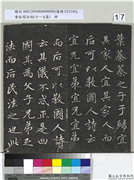 17
葉蓁蓁之子于歸宜
其家人宜其家人而
后可以教國人詩云
宜兄宜弟宜兄宜弟
而后可以教國人詩
云其儀不忒正是四
國其為父子兄弟足
法而后民法之也此